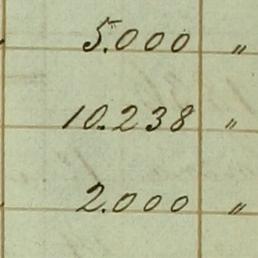 5.000 "
10.238 "
2.000 "